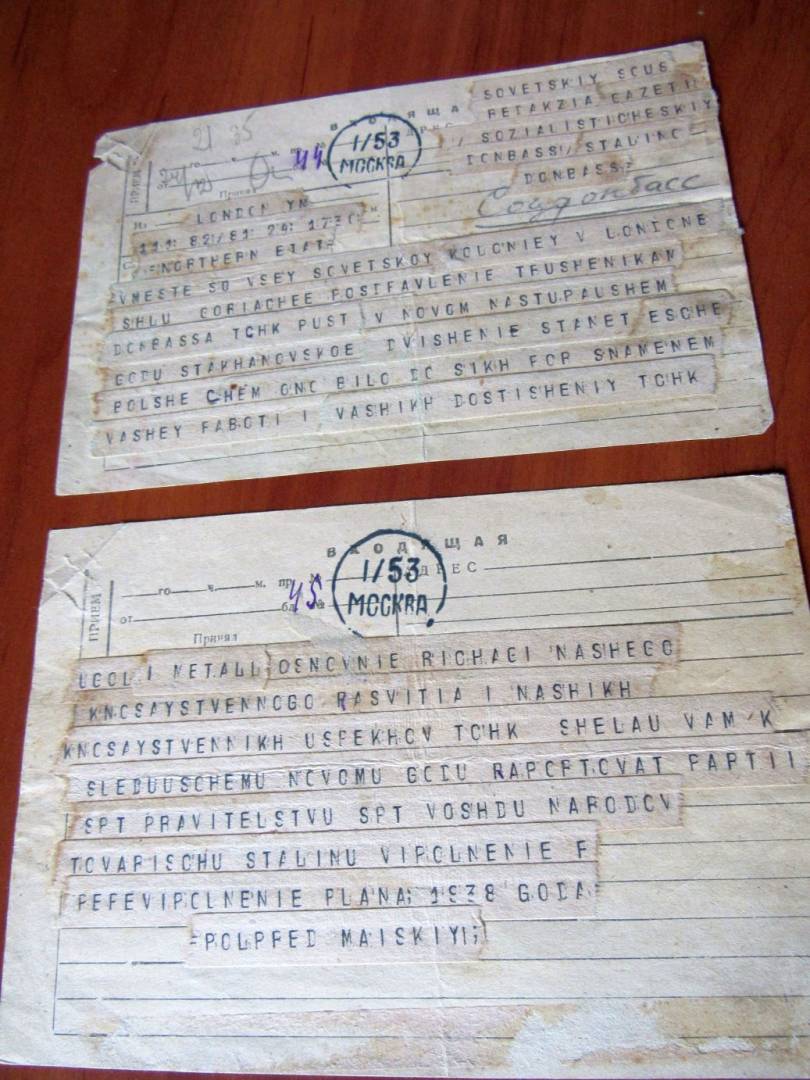 ВХОДЯЩАЯ
21 35
44
1/53
МОСКВА
SOVETSKIY SCUS
RETAKZIA GAZETI
,, SOZIALISTICHESKIY
DONBASS,, STALINC=
DONBASS=
Соцдонбасс
ПРИЕМ
Принял
LONDON YN
111: 82/81: 24: 1730:
=NORTHERN ETAT=
VMESTE SO VSEY SOVETSKOY KOLONIEY V LONDONE
SHLU GORIACHEE POSTRAVLENIE TRUSHENIKAM
DONBASSA TCHK PUST V NOVOM NASTUPAUSHEM
GODU STAKHANOVSKOE DVISHENIE STANET ESCHE
BOLSHE CHEM ONO BILO DO SIKH POR SNAMENEM
VASHEY RABOTI I VASHIKH DOSTISHENIY TCHK
ВХОДЯЩАЯ
1/53
МОСКВА
АДРЕС
го ч. м.
45
от
ПРИЕМ
Принял
UGOL I METALL OSNOVNIE RICHAGI NASHEGO
KNOSAYSTVENNOGO RASVITIA I NASHIKH
KNOSAYSTVENNIKH USPEKHOV TCHK SHELAU VAM K
SLEDUUSCHEMU NOVOMU GODU RAPORTOVAT PARTII
SPT PRAVITELSTVU SPT VOSHDU NARODOV
TOVARISCHU STALINU VIPOLNENIE F
PEREVIPOLNENIE PLANA; 1938 GODA
=POLPRED MAISKIYI;